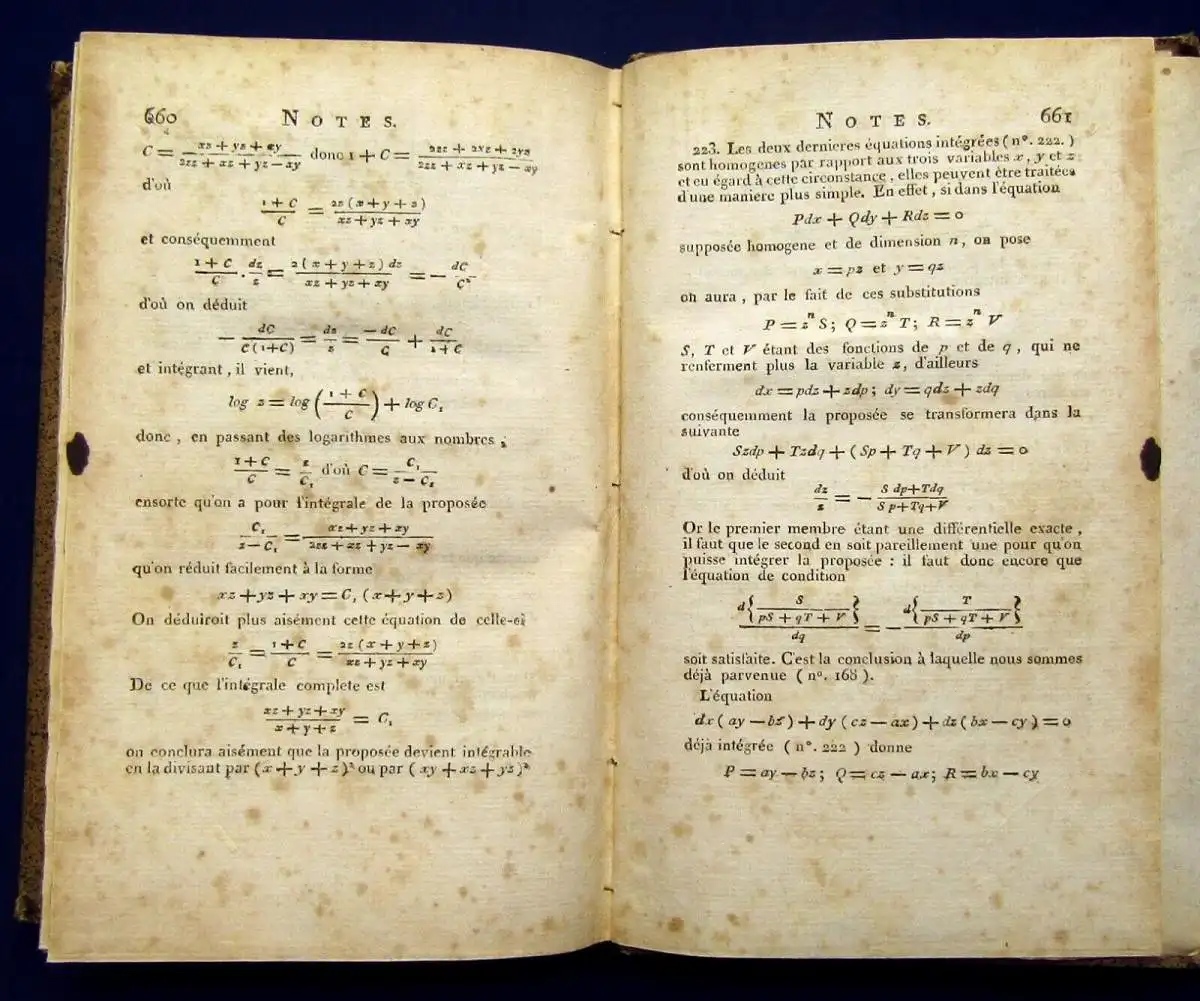 660 NOTES.
C = (xz + yz + xy)/(2zz + xz + yz — xy) donc 1 + C = (2zz + 2xz + 2yz)/(2zz + xz + yz — xy)
d'où
(1 + C)/C = 2z (x + y + z)/(xz + yz + xy)
et conséquemment
(1 + C)/C . dz/z = 2 (x + y + z) dz/(xz + yz + xy) = — dC/C
d'où on déduit
— dC/(C(1+C)) = dz/z = — dC/C + dC/(1+C)
et intégrant, il vient,
log z = log ((1 + C)/C) + log C₁
donc, en passant des logarithmes aux nombres ;
(1 + C)/C = z/C₁ d'où C = C₁/(z — C₁)
ensorte qu'on a pour l'intégrale de la proposée
C₁/(z — C₁) = (xz + yz + xy)/(2zz + xz + yz — xy)
qu'on réduit facilement à la forme
xz + yz + xy = C₁ (x + y + z)
On déduiroit plus aisément cette équation de celle-ci
z/C₁ = (1 + C)/C = 2z (x + y + z)/(xz + yz + xy)
De ce que l'intégrale complete est
(xz + yz + xy)/(x + y + z) = C₁
on conclura aisément que la proposée devient intégrable
en la divisant par (x + y + z)² ou par (xy + xz + yz)²
NOTES. 661
223. Les deux dernieres équations intégrées (n°. 222.)
sont homogenes par rapport aux trois variables x, y et z
et eu égard à cette circonstance, elles peuvent être traitées
d'une maniere plus simple. En effet, si dans l'équation
Pdx + Qdy + Rdz = 0
supposée homogene et de dimension n, on pose
x = pz et y = qz
on aura, par le fait de ces substitutions
P = zⁿ S ; Q = zⁿ T ; R = zⁿ V
S, T et V étant des fonctions de p et de q, qui ne
renferment plus la variable z, d'ailleurs
dx = pdz + zdp ; dy = qdz + zdq
conséquemment la proposée se transformera dans la
suivante
Szdp + Tzdq + (Sp + Tq + V) dz = 0
d'où on déduit
dz/z = — (S dp + Tdq)/(Sp + Tq + V)
Or le premier membre étant une différentielle exacte,
il faut que le second en soit pareillement une pour qu'on
puisse intégrer la proposée : il faut donc encore que
l'équation de condition
d{S/(pS + qT + V)}/dq = — d{T/(pS + qT + V)}/dp
soit satisfaite. C'est la conclusion à laquelle nous sommes
déjà parvenue (n°. 168).
L'équation
dx (ay — bz) + dy (cz — ax) + dz (bx — cy) = 0
déjà intégrée (n°. 222) donne
P = ay — bz ; Q = cz — ax ; R = bx — cy